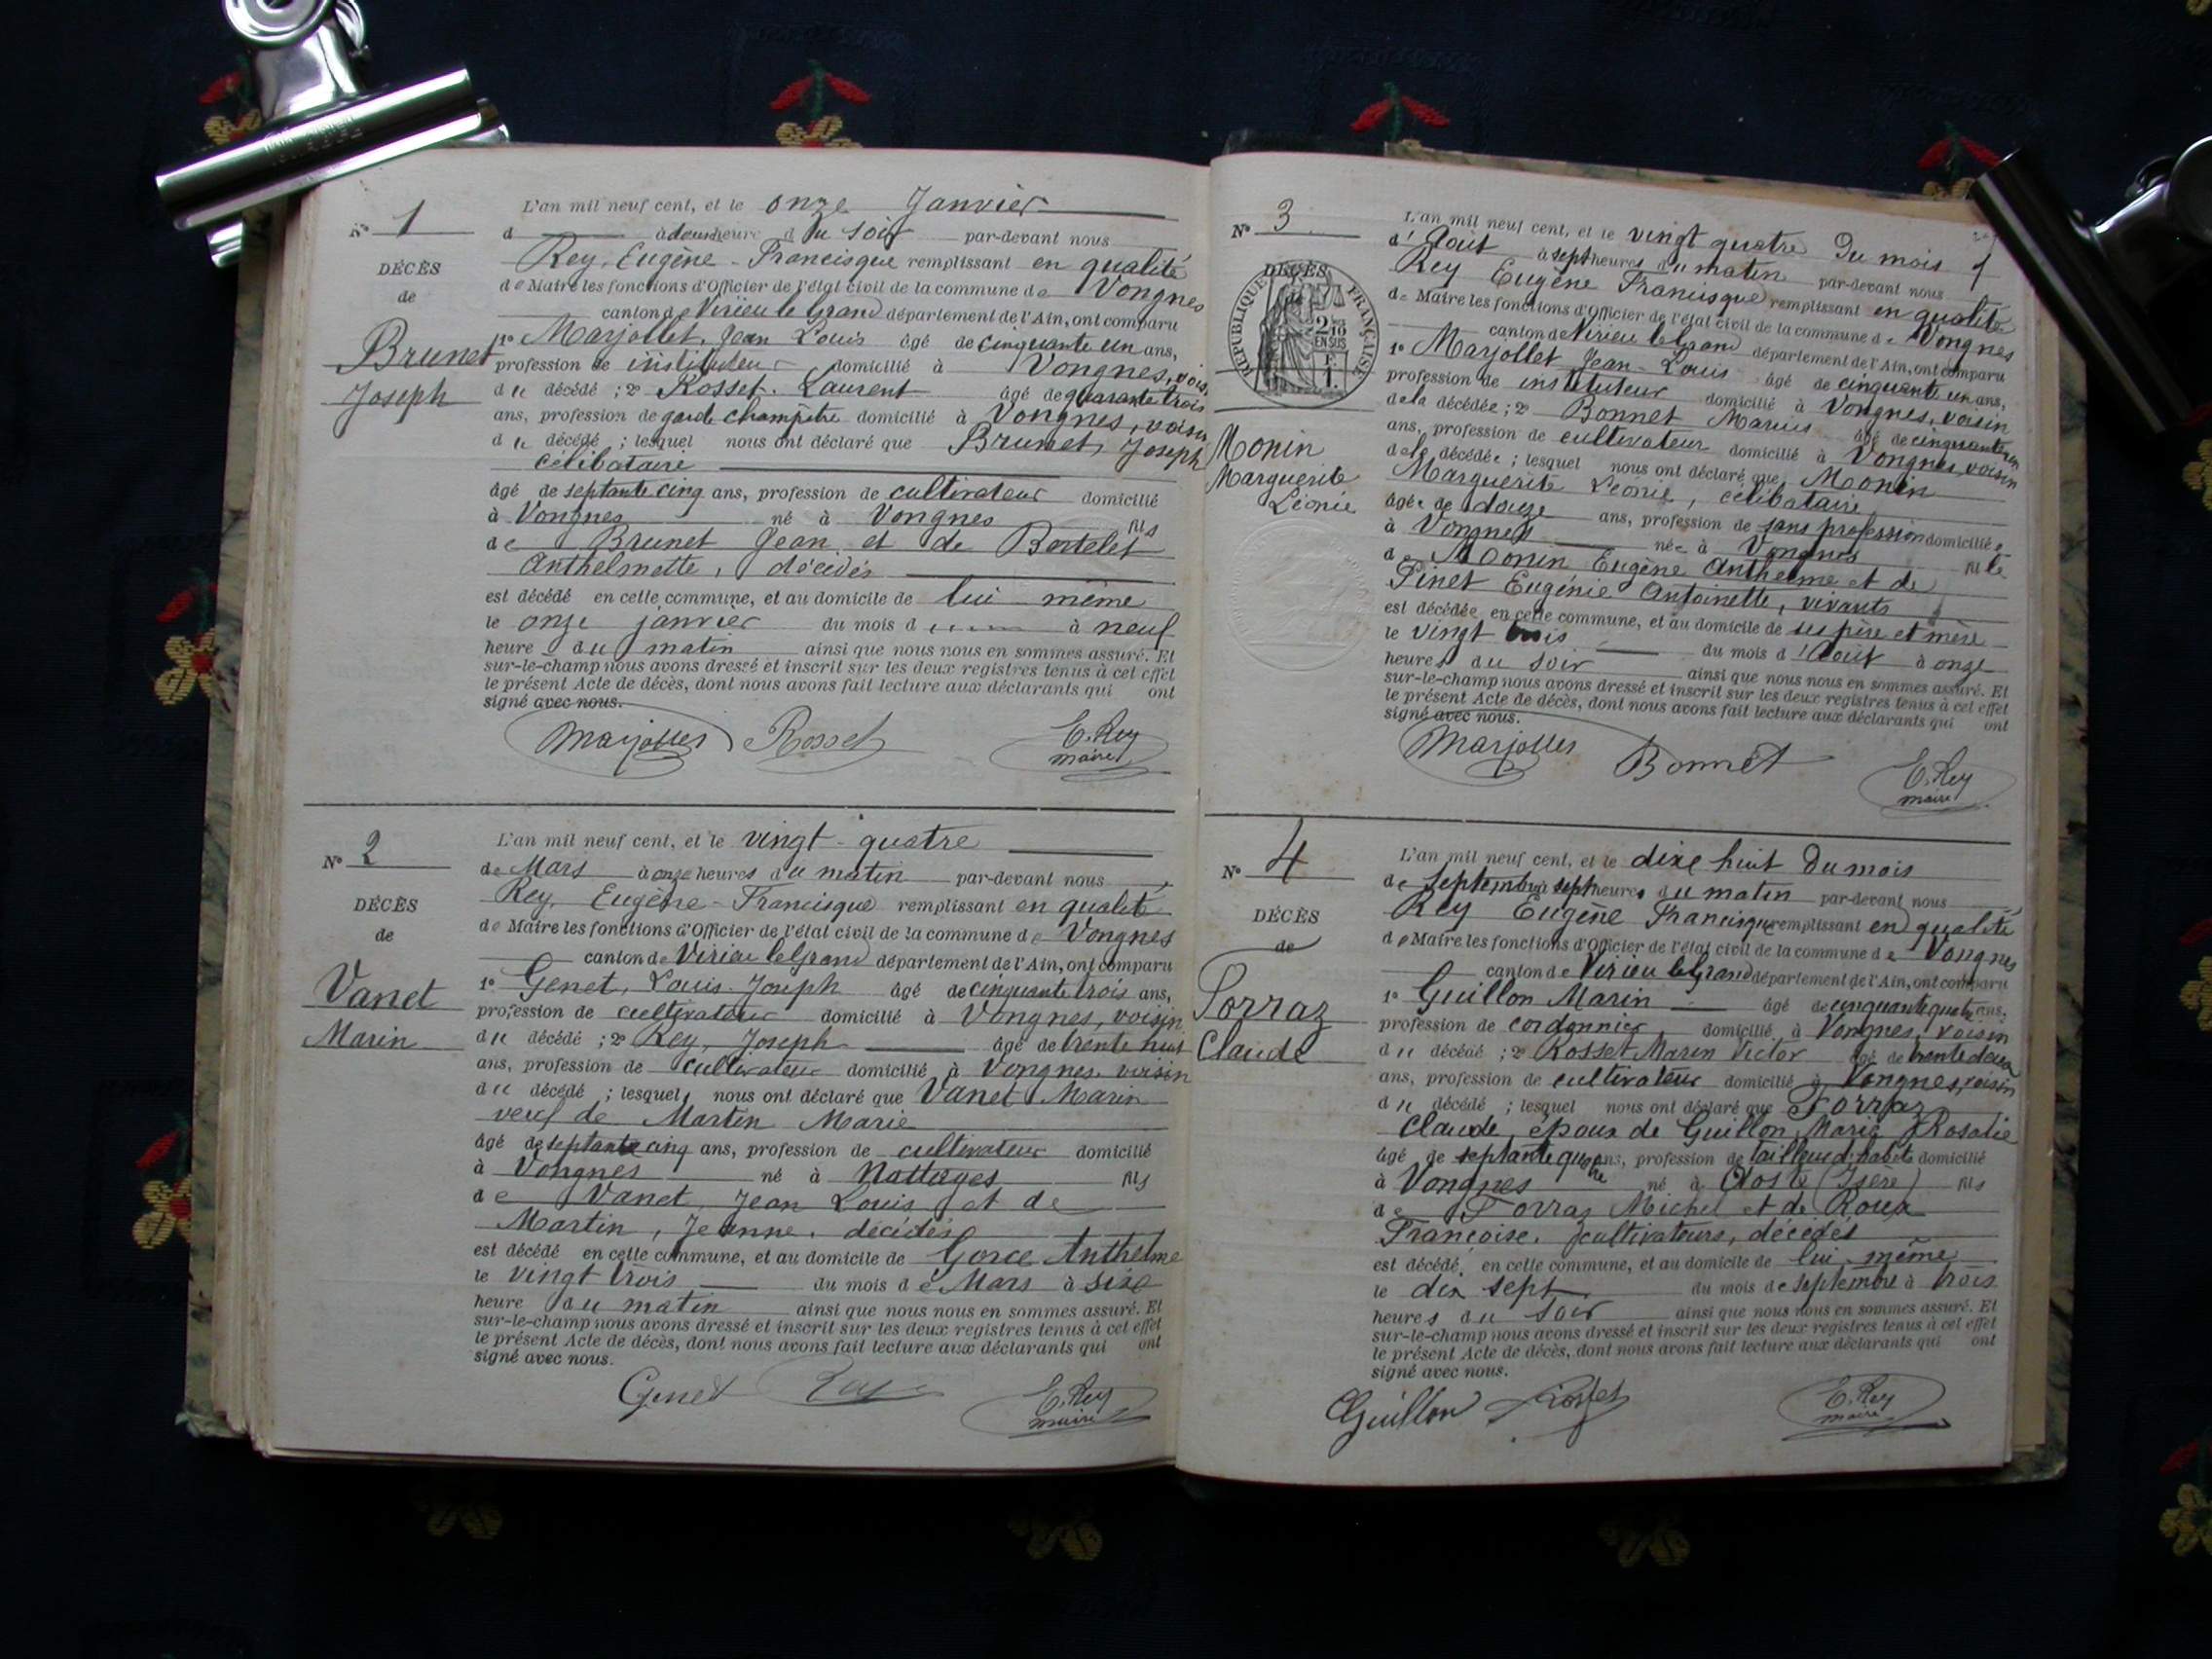 N° 1
DÉCÈS
de
Brunet
Joseph
L'an mil neuf cent, et le onze Janvier
d à deux heure d u soir par-devant nous
Rey, Eugène-Francisque remplissant en qualité
de Maire les fonctions d'Officier de l'état civil de la commune de Vongnes
canton de Virieu le Grand département de l'Ain, ont comparu
1° Marjollet, Jean Louis âgé de cinquante un ans,
profession de instituteur domicilié à Vongnes, vois.
du décédé ; 2° Rosset. Laurent âgé de quarante trois
ans, profession de garde champêtre domicilié à Vongnes, voisin
du décédé ; lesquel nous ont déclaré que Brunet, Joseph
célibataire
âgé de septante cinq ans, profession de cultivateur domicilié
à Vongnes né à Vongnes fils
de Brunet Jean et de Bertelet
Anthelmette, décédés
est décédé en cette commune, et au domicile de lui même
le onze janvier du mois d à neuf
heure du matin ainsi que nous nous en sommes assuré. Et
sur-le-champ nous avons dressé et inscrit sur les deux registres tenus à cet effet
le présent Acte de décès, dont nous avons fait lecture aux déclarants qui ont
signé avec nous.
Marjollet Rosset E. Rey
maire
N° 2
DÉCÈS
de
Vanet
Marin
L'an mil neuf cent, et le vingt-quatre
de Mars à onze heures du matin par-devant nous
Rey, Eugène-Francisque remplissant en qualité
de Maire les fonctions d'Officier de l'état civil de la commune de Vongnes
canton de Virieu le Grand département de l'Ain, ont comparu
1° Genet, Louis-Joseph âgé de cinquante trois ans,
profession de cultivateur domicilié à Vongnes, voisin
du décédé ; 2° Rey, Joseph âgé de trente huit
ans, profession de cultivateur domicilié à Vongnes voisin
du décédé ; lesquel nous ont déclaré que Vanet Marin
veuf de Martin Marie
âgé de septante cinq ans, profession de cultivateur domicilié
à Vongnes né à Nattages fils
de Vanet, Jean Louis et de
Martin, Jeanne, décédés
est décédé en cette commune, et au domicile de Gorce Anthelme
le vingt trois du mois de Mars à sixe
heure du matin ainsi que nous nous en sommes assuré. Et
sur-le-champ nous avons dressé et inscrit sur les deux registres tenus à cet effet
le présent Acte de décès, dont nous avons fait lecture aux déclarants qui ont
signé avec nous.
Genet Rey E. Rey
maire
N° 3
DÉCÈS
RÉPUBLIQUE FRANÇAISE
2/10
EN SUS
1F.
Monin
Marguerite
Léonie
L'an mil neuf cent, et le vingt quatre du mois
d'Août à sept heures du matin par-devant nous
Rey Eugène Francisque remplissant en qualité
de Maire les fonctions d'Officier de l'état civil de la commune de Vongnes
canton de Virieu le Grand département de l'Ain, ont comparu
1° Marjollet Jean-Louis âgé de cinquante un ans,
profession de instituteur domicilié à Vongnes, voisin
de la décédée ; 2° Bonnet Marius âgé de cinquante un
ans, profession de cultivateur domicilié à Vongnes, voisin
de la décédée ; lesquel nous ont déclaré que Monin
Marguerite Léonie, célibataire
âgée de douze ans, profession de sans profession domiciliée
à Vongnes née à Vongnes fille
de Monin Eugène Anthelme et de
Pinet Eugénie Antoinette, vivants
est décédée en cette commune, et au domicile de ses père et mère
le vingt trois du mois d'Août à onze
heures du soir ainsi que nous nous en sommes assuré. Et
sur-le-champ nous avons dressé et inscrit sur les deux registres tenus à cet effet
le présent Acte de décès, dont nous avons fait lecture aux déclarants qui ont
signé avec nous.
Marjollet Bonnet E. Rey
maire
N° 4
DÉCÈS
de
Forraz
Claude
L'an mil neuf cent, et le dixe huit du mois
de Septembre à sept heures du matin par-devant nous
Rey Eugène Francisque remplissant en qualité
de Maire les fonctions d'Officier de l'état civil de la commune de Vongnes
canton de Virieu le Grand département de l'Ain, ont comparu
1° Guillon Marin âgé de cinquante quatre ans,
profession de cordonnier, domicilié à Vongnes, voisin
du décédé ; 2° Rosset Marin Victor âgé de trente deux
ans, profession de cultivateur domicilié à Vongnes, voisin
du décédé ; lesquel nous ont déclaré que Forraz
Claude, époux de Guillon Marie Rosalie
âgé de septante quatre ans, profession de tailleur d'habits domicilié
à Vongnes né à Aoste (Isère) fils
de Forraz Michel et de Roux
Françoise, cultivateurs, décédés
est décédé en cette commune, et au domicile de lui même
le dix sept du mois de septembre à trois
heures du soir ainsi que nous nous en sommes assuré. Et
sur-le-champ nous avons dressé et inscrit sur les deux registres tenus à cet effet
le présent Acte de décès, dont nous avons fait lecture aux déclarants qui ont
signé avec nous.
Guillon Rosset E. Rey
maire